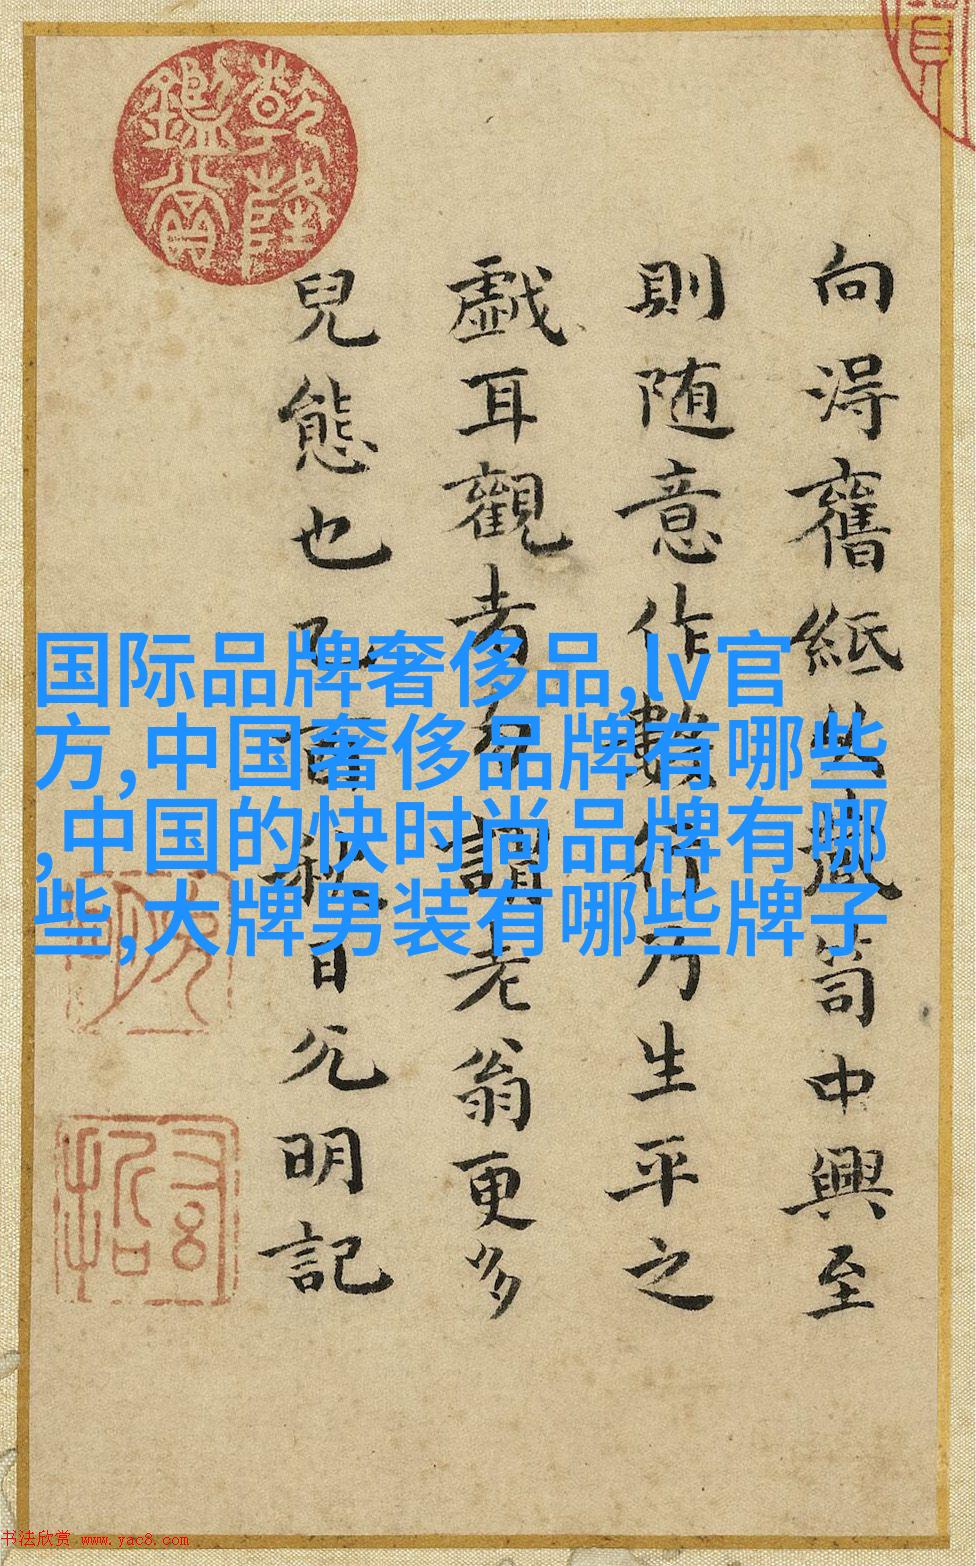 乾隆
鑑賞
向得舊紙藏笥中興至
則随意作數行乃生平之
戲耳觀者勿謂老翁更多
兒態也乙酉秋日允明記
国际品牌奢侈品,lv官
方,中国奢侈品牌有哪些
,中国的快时尚品牌有哪
些,大牌男装有哪些牌子
书法欣赏 www.yac8.com